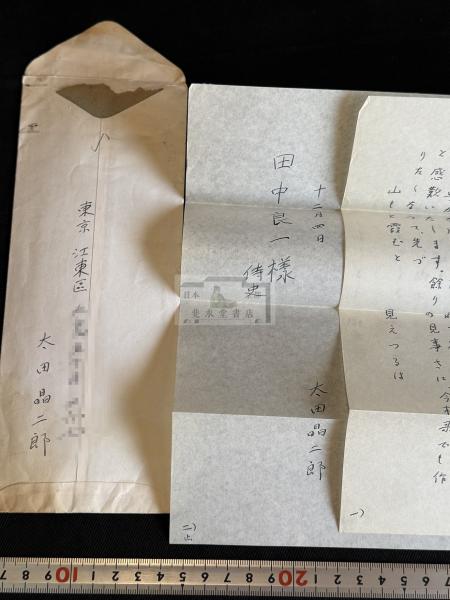 東京 江東区
太田晶二郎
と感歎いたします、餘りの見事さに、今様歌でも作
りたくなつて、先づ
山もと霞むと 見えつるは
一)
十二月四日
田中良一様
侍史
太田晶二郎
二)止
日本
書店
9 10 1 2 3 4 5 6 7 8 9 20 1 2 3 4 5 6 7